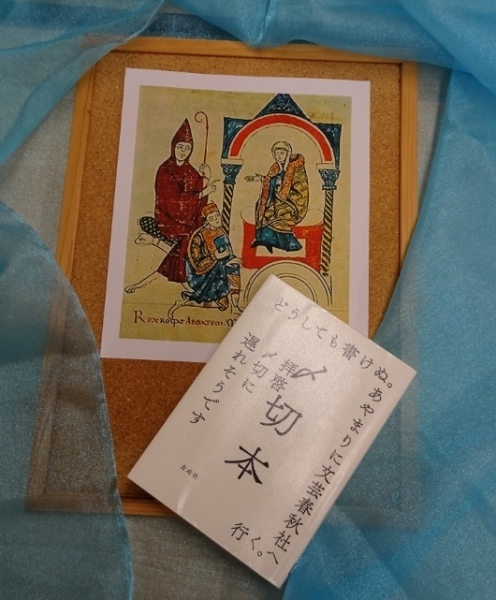 REX ROGAT ABBATEM
どうしても書けぬ。あやまりに文芸春秋社へ
行く。
〆切本
拝啓
〆切に
遅れそうです
左右社